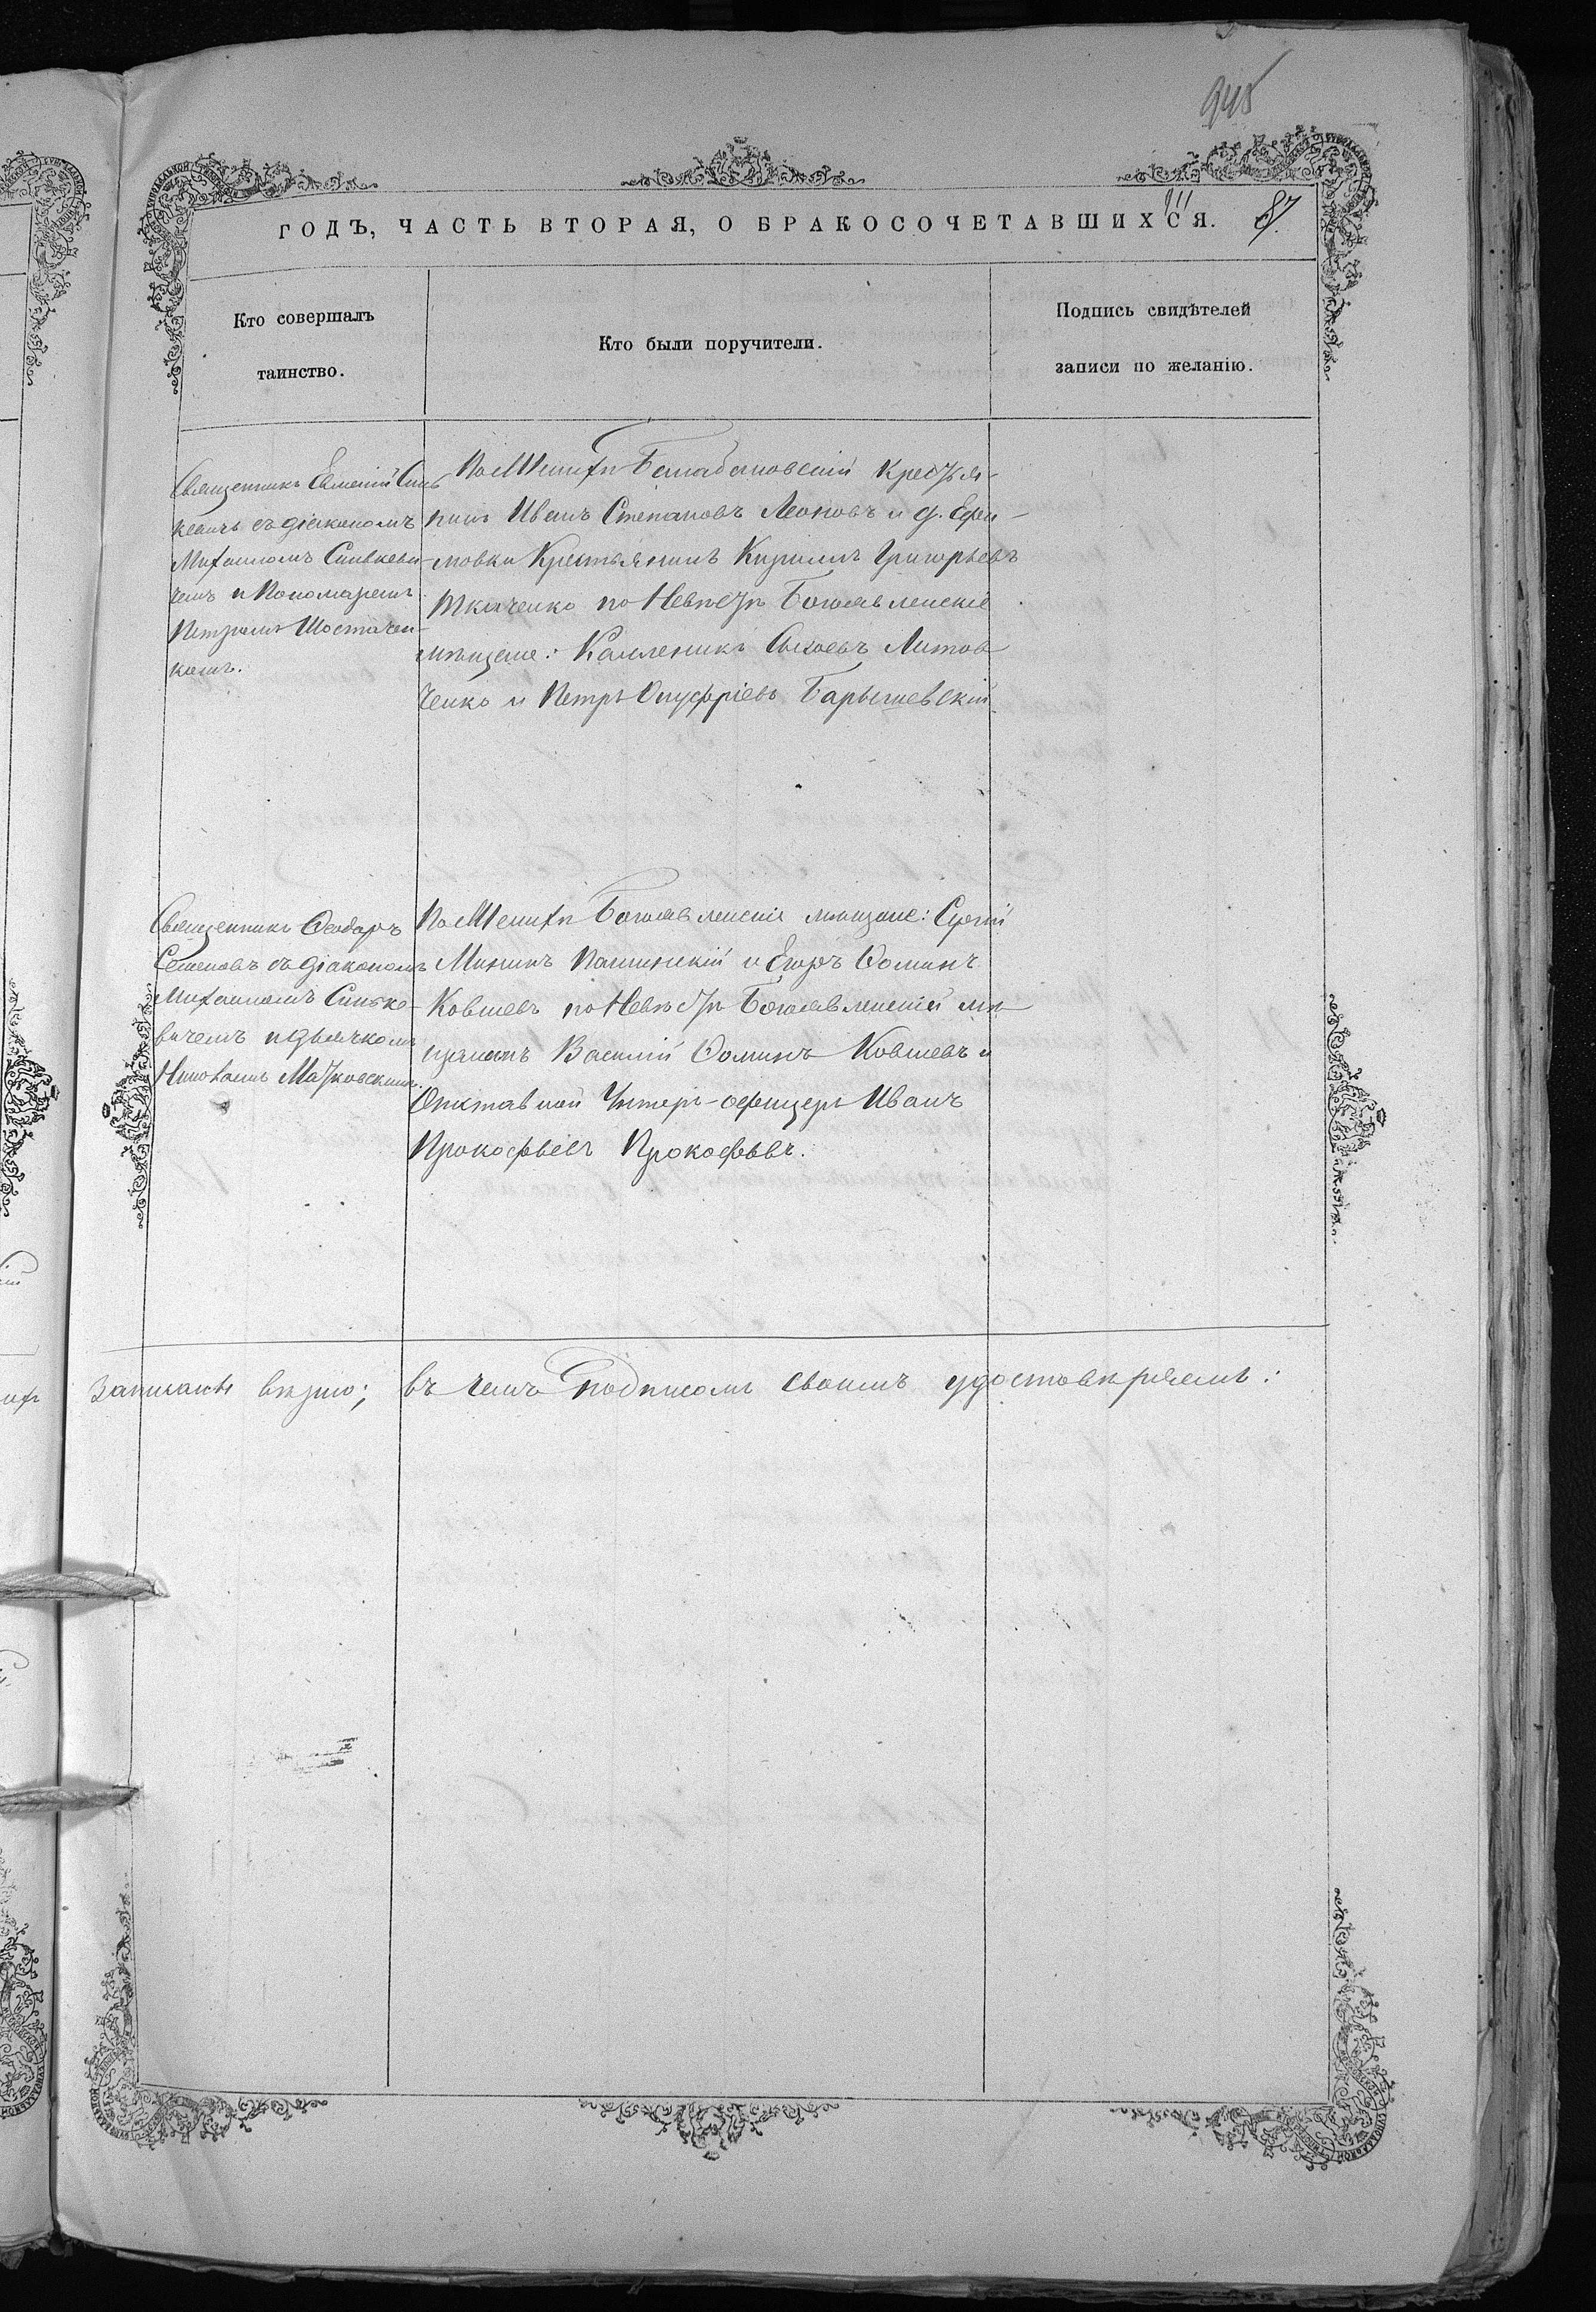 945
111
ГОДЪ, ЧАСТЬ ВТОРАЯ, О БРАКОСОЧЕТАВШИХСЯ. 87.
Кто совершалъ
таинство.
Кто были поручители.
Подпись свидѣтелей
записи по желанію.
Священникъ Евменій Синь
кевичъ съ діакономъ
Михаиломъ Синькеви-
чемъ и Пономаремъ
Петромъ Шостачен-
комъ.
По Женихѣ Балабановскій крестья-
нинъ Иванъ Степановъ Леоновъ и д. Ефи-
мовки Крестьянинъ Кириллъ Григорьевъ
Ткаченко по Невѣстѣ Богоявленскіе
мѣщане: Каленикъ Литов-
ченко и Петръ Онуфріевъ Барышевскій
Священникъ Ѳеодоръ
Семеновъ съ діакономъ
Михаиломъ Синьке-
вичемъ и дьячкомъ
Николаемъ Матковскимъ.
По Женихѣ Богоявленскіе мѣщане: Сергій
Мининъ и Егоръ Ѳоминъ
Ковшевъ по Невѣстѣ Богоявленскій мѣ-
щанинъ Василій Ѳоминъ Ковшевъ и
Отставной Унтеръ-офицеръ Иванъ
Прокофьевъ Прокофьевъ.
записаны вѣрно; въ чемъ подписомъ своимъ удостовѣряемъ: